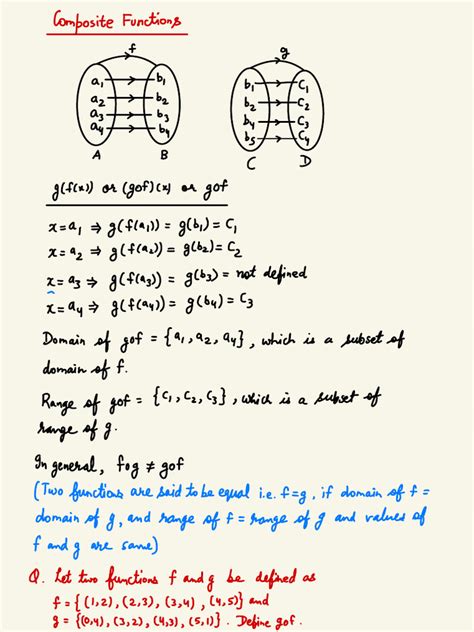 Composite Functions
f
g
a₁ b₁
a₂ b₂
a₃ b₃
a₄ b₄
A B
b₁ C₁
b₂ C₂
b₄ C₃
b₅ C₄
C D
g(f(x)) or (gof)(x) or gof
x=a₁ ⇒ g(f(a₁)) = g(b₁) = C₁
x=a₂ ⇒ g(f(a₂)) = g(b₂) = C₂
x=a₃ ⇒ g(f(a₃)) = g(b₃) = not defined
x=a₄ ⇒ g(f(a₄)) = g(b₄) = C₃
Domain of gof = {a₁, a₂, a₄}, which is a subset of
domain of f.
Range of gof = {C₁, C₂, C₃}, which is a subset of
range of g.
In general, fog ≠ gof
(Two functions are said to be equal i.e. f=g, if domain of f =
domain of g, and range of f = range of g and values of
f and g are same)
Q. Let two functions f and g be defined as
f = {(1,2), (2,3), (3,4), (4,5)} and
g = {(0,4), (3,2), (4,3), (5,1)}. Define gof.